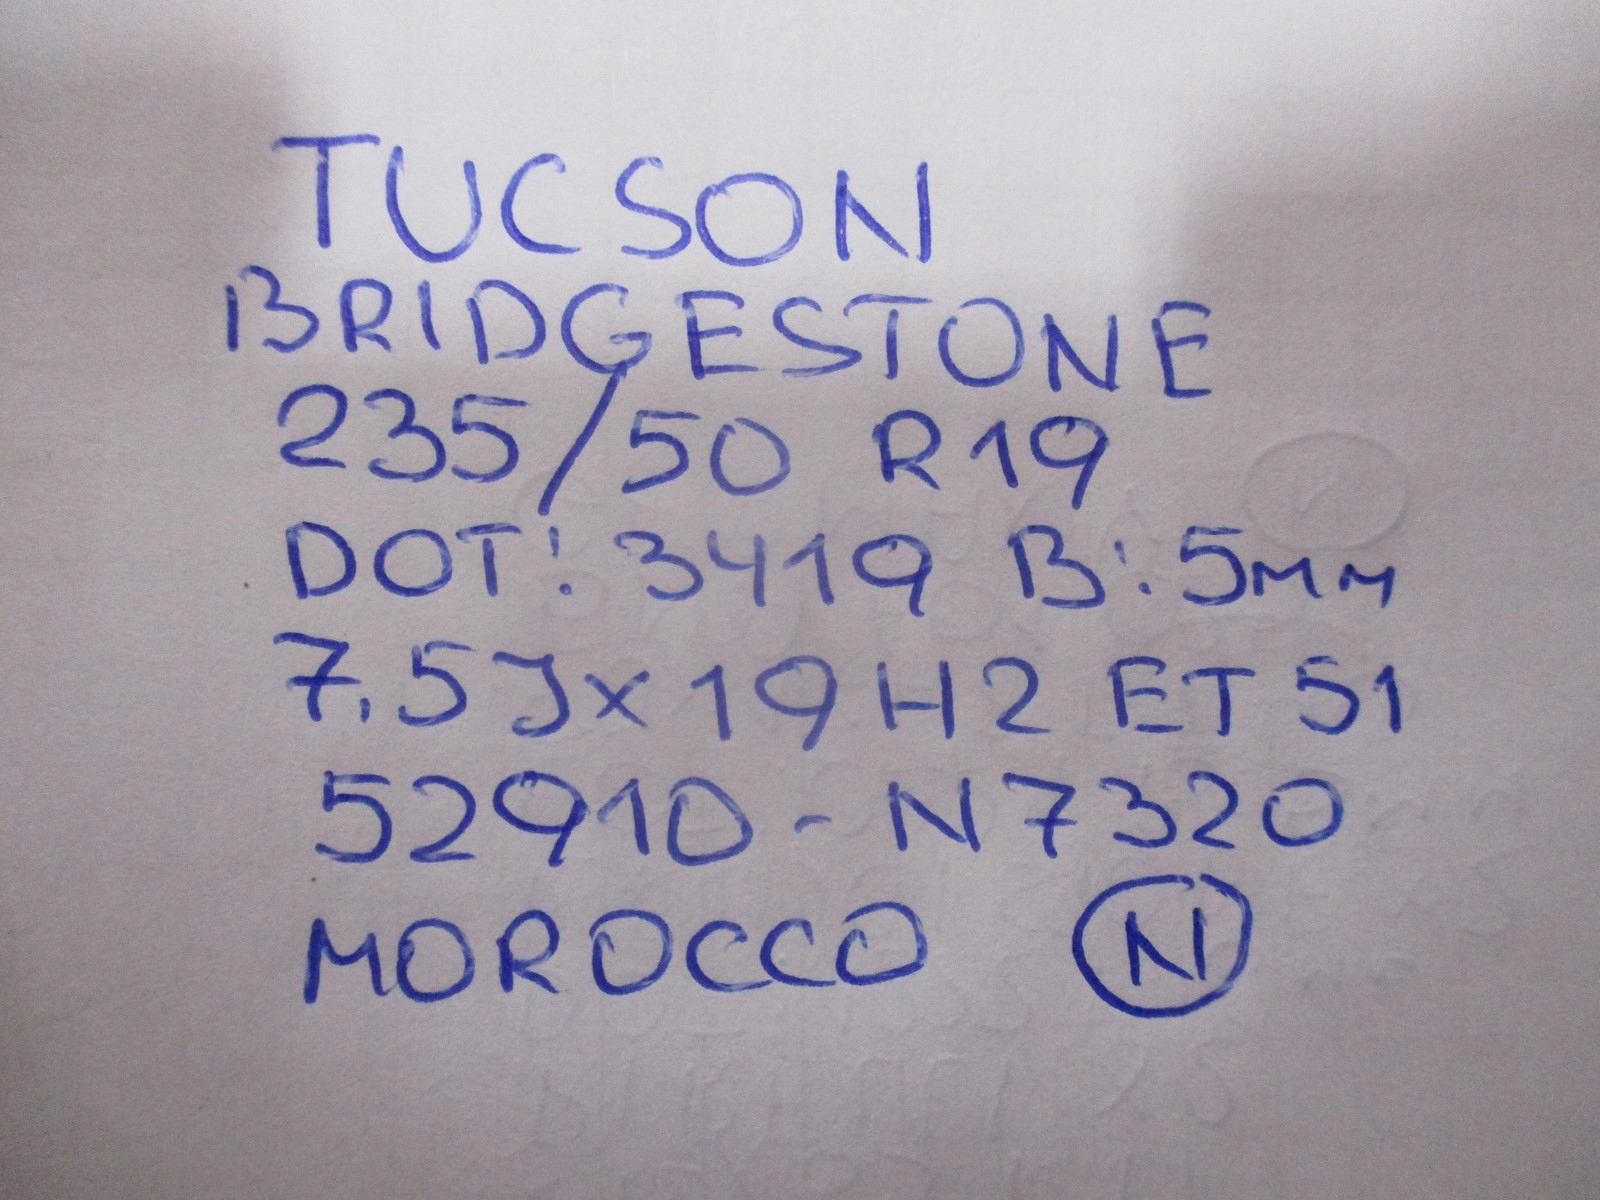 TUCSON
BRIDGESTONE
235/50 R19
DOT: 3419 B: 5mm
7.5Jx19 H2 ET 51
52910-N7320
MOROCCO N